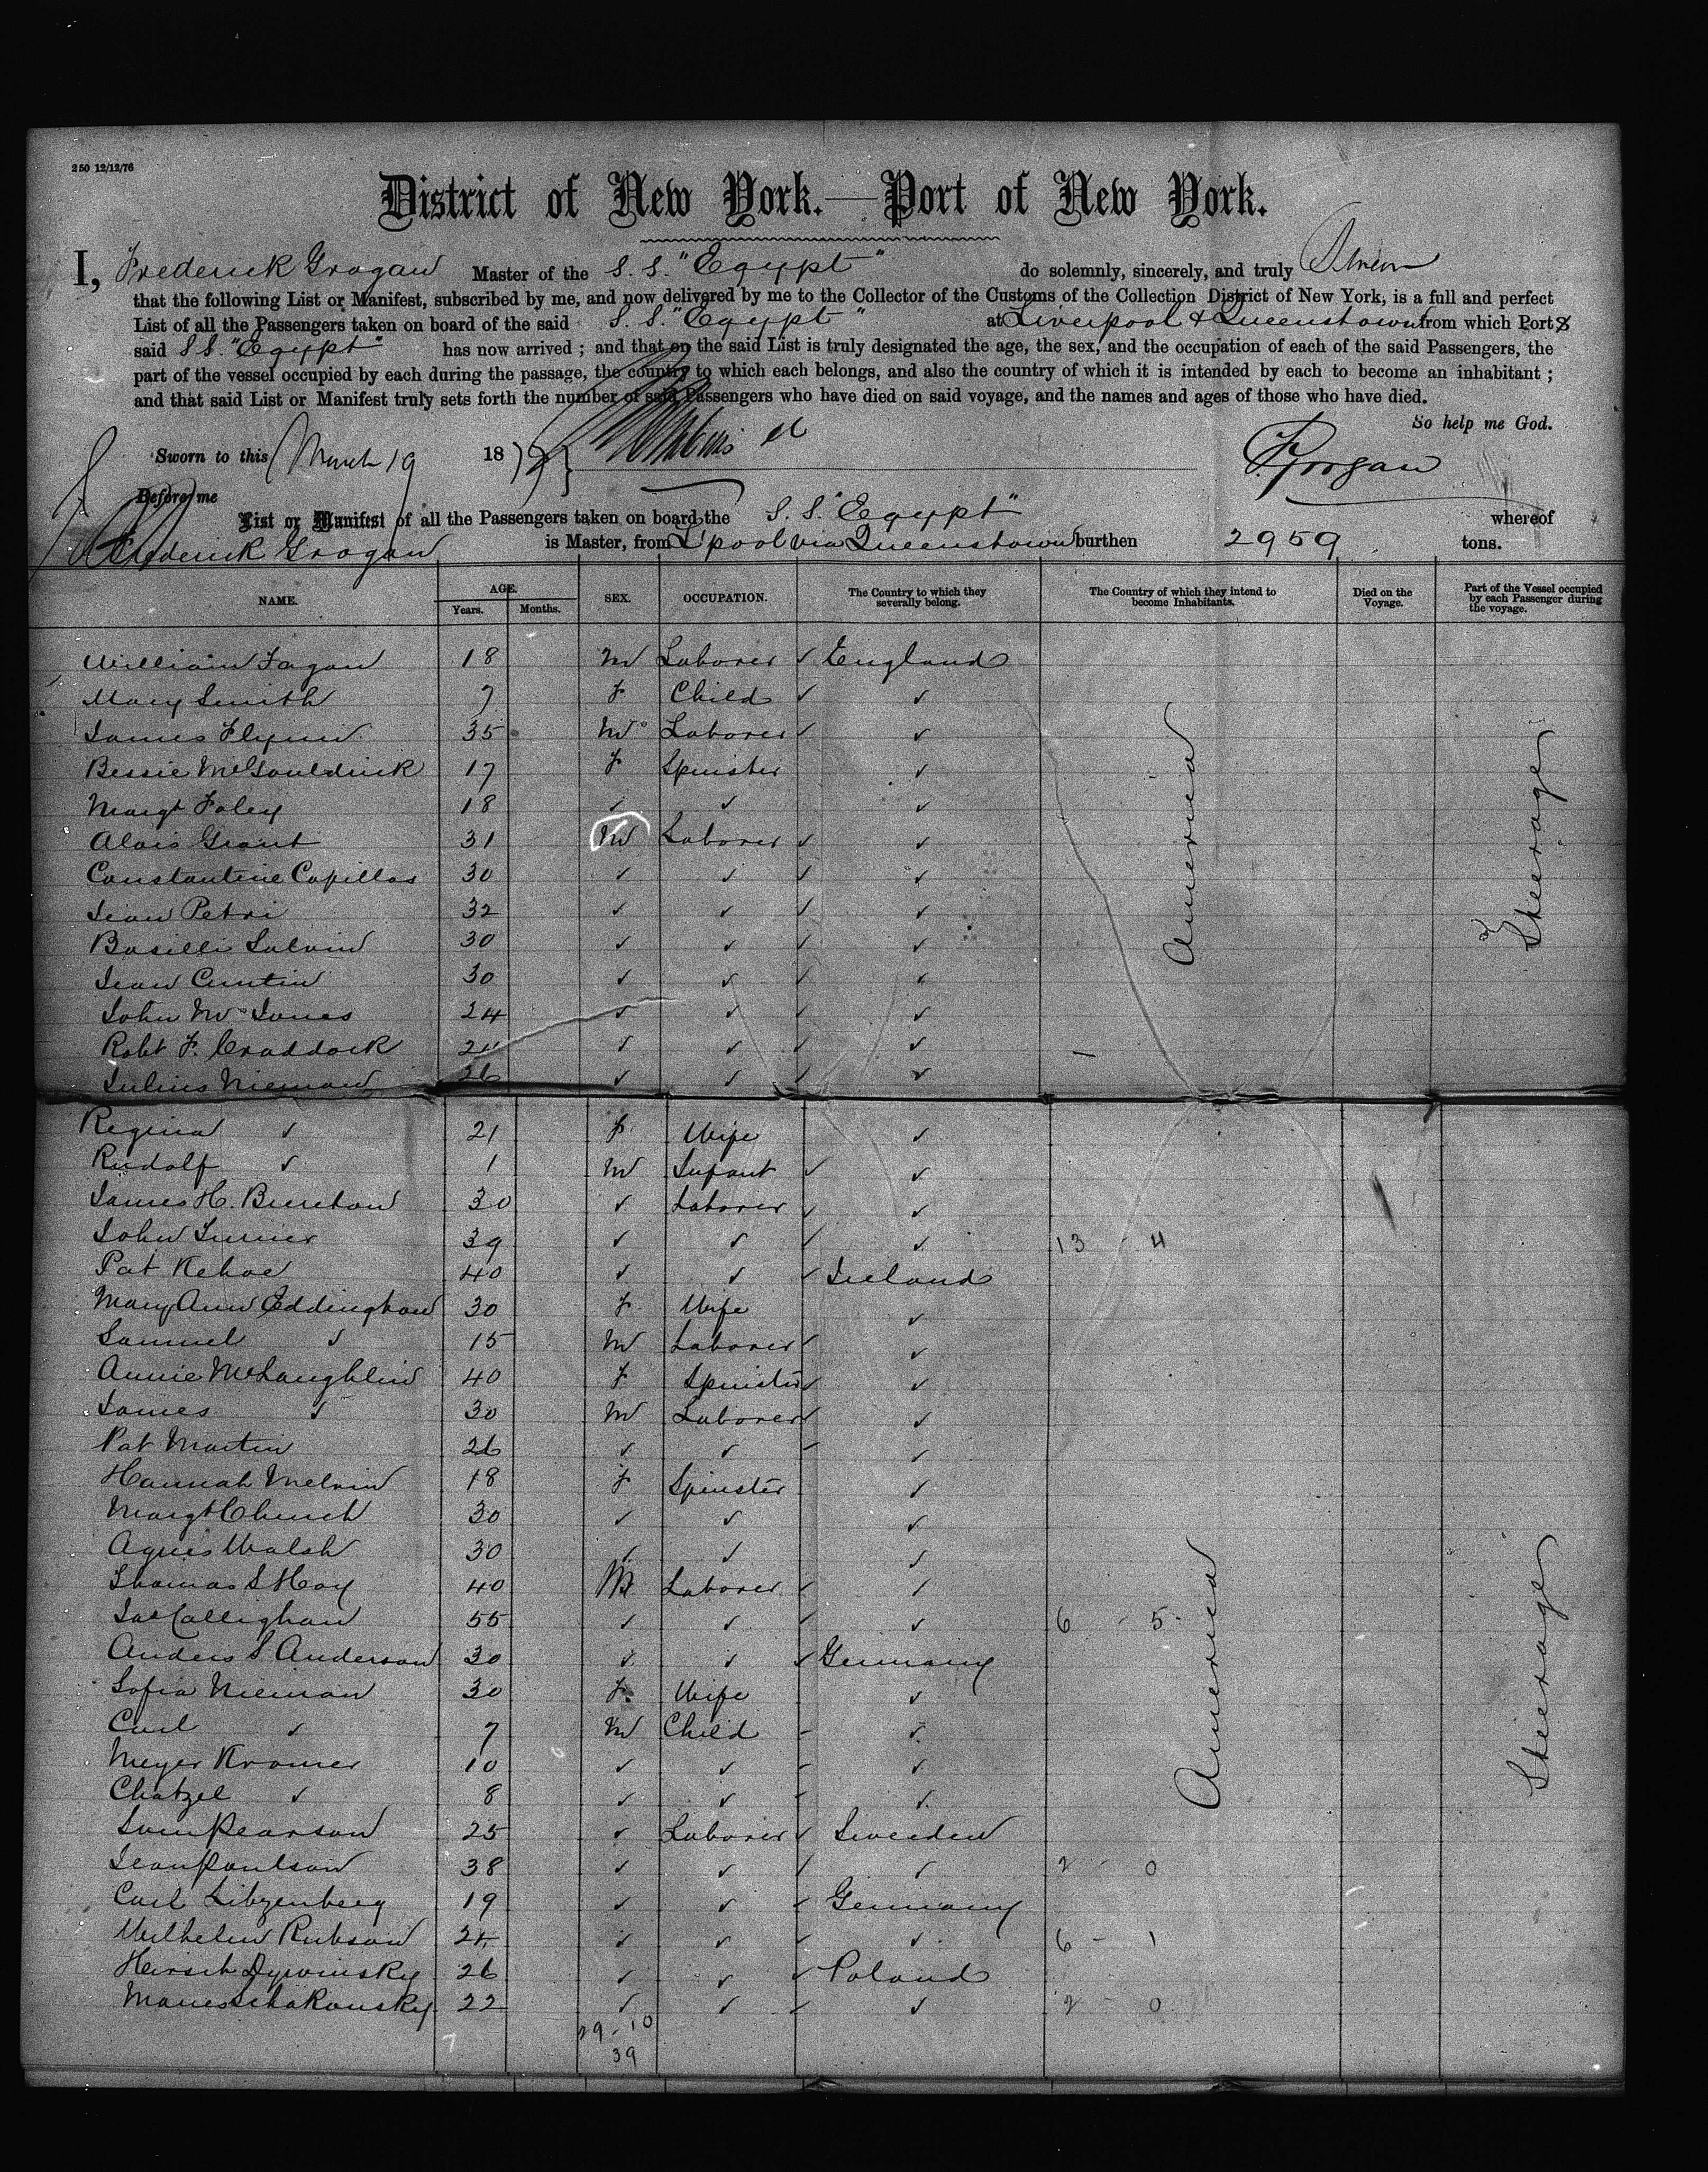 250 12/12/76
District of New York.—Port of New York.
I, Frederick Grogan Master of the S.S. "Egypt" do solemnly, sincerely, and truly Swear
that the following List or Manifest, subscribed by me, and now delivered by me to the Collector of the Customs of the Collection District of New York, is a full and perfect
List of all the Passengers taken on board of the said S.S. "Egypt" at Liverpool & Queenstown from which Port
said S.S. "Egypt" has now arrived; and that on the said List is truly designated the age, the sex, and the occupation of each of the said Passengers, the
part of the vessel occupied by each during the passage, the country to which each belongs, and also the country of which it is intended by each to become an inhabitant;
and that said List or Manifest truly sets forth the number of said Passengers who have died on said voyage, and the names and ages of those who have died.
So help me God.
Sworn to this March 19 1877 } F Grogan
Before me
List or Manifest of all the Passengers taken on board the S.S. "Egypt" whereof
Frederick Grogan is Master, from L'pool via Queenstown burthen 2959 tons.
NAME. AGE. Years. Months. SEX. OCCUPATION. The Country to which they severally belong. The Country of which they intend to become Inhabitants. Died on the Voyage. Part of the Vessel occupied by each Passenger during the voyage.
William Fagan 18 M Laborer ✓ England
Mary Smith 7 F Child ✓ ✓
James Flynn 35 M Laborer ✓ ✓
Bessie McGouldrick 17 F Spinster ✓
Margt Foley 18 ✓ ✓ ✓
Alois Grant 31 M Laborer ✓ ✓
Constantine Capillas 30 ✓ ✓ ✓ ✓
Jean Petri 32 ✓ ✓ ✓ ✓
Basilli Salvin 30 ✓ ✓ ✓ ✓
Jean Cuntin 30 ✓ ✓ ✓ ✓
John M. Jones 24 ✓ ✓ ✓ ✓
Robt F. Craddock 24 ✓ ✓ ✓ ✓
Julius Nieman 26 ✓ ✓ ✓ ✓
America
Steerage
Regina ✓ 21 F Wife ✓
Rudolf ✓ 1 M Infant ✓ ✓
James H. Bureton 30 ✓ Laborer ✓ ✓
John Turner 39 ✓ ✓ ✓ ✓ 13 - 4
Pat Kehoe 40 ✓ ✓ ✓ Ireland
Mary Ann Eddington 30 F Wife ✓
Samuel ✓ 15 M Laborer ✓ ✓
Annie McLaughlin 40 F Spinster ✓ ✓
James ✓ 30 M Laborer ✓ ✓
Pat Martin 26 ✓ ✓ ✓ ✓
Hannah Melvin 18 F Spinster ✓
Margt Church 30 ✓ ✓ ✓
Agnes Walsh 30 ✓ ✓ ✓
Thomas S Hoy 40 M Laborer ✓ ✓
Jas Callighan 55 ✓ ✓ ✓ ✓ 6 - 5
Anders S Anderson 30 ✓ ✓ ✓ Germany
Sofia Nieman 30 F Wife ✓
Carl ✓ 7 M Child ✓ ✓
Meyer Kramer 10 ✓ ✓ ✓ ✓
Chatzel ✓ 8 ✓ ✓ ✓ ✓
Sven Pearson 25 ✓ Laborer ✓ Sweeden
Jean Paulson 38 ✓ ✓ ✓ ✓ 2 - 0
Carl Libzenberg 19 ✓ ✓ ✓ Germany
Wilhelm Rubson 24 ✓ ✓ ✓ ✓ 6 - 1
Hirsch Dywinsky 26 ✓ ✓ ✓ Poland
Manes Schakousky 22 ✓ ✓ ✓ ✓ 2 - 0
America
Steerage
29 - 10
39